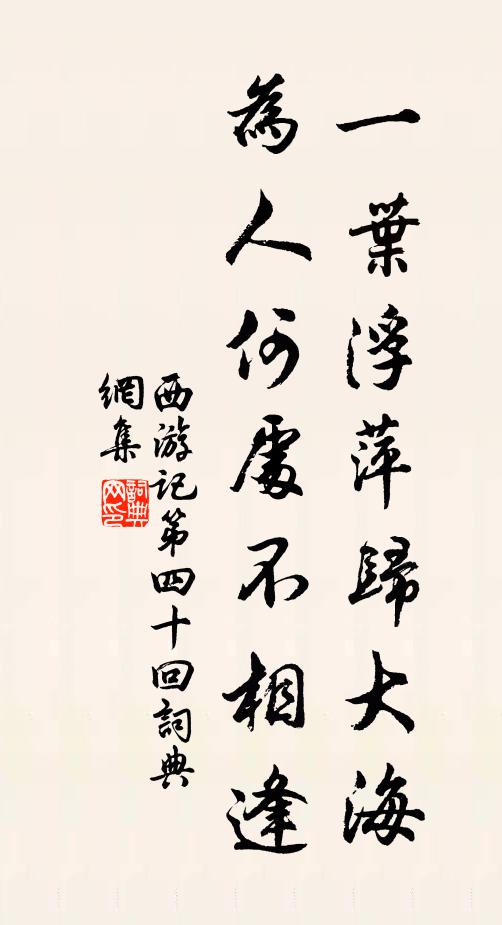 一葉浮萍歸大海
為人何處不相逢
西游记第四十回詞典
網集
詞典
网印